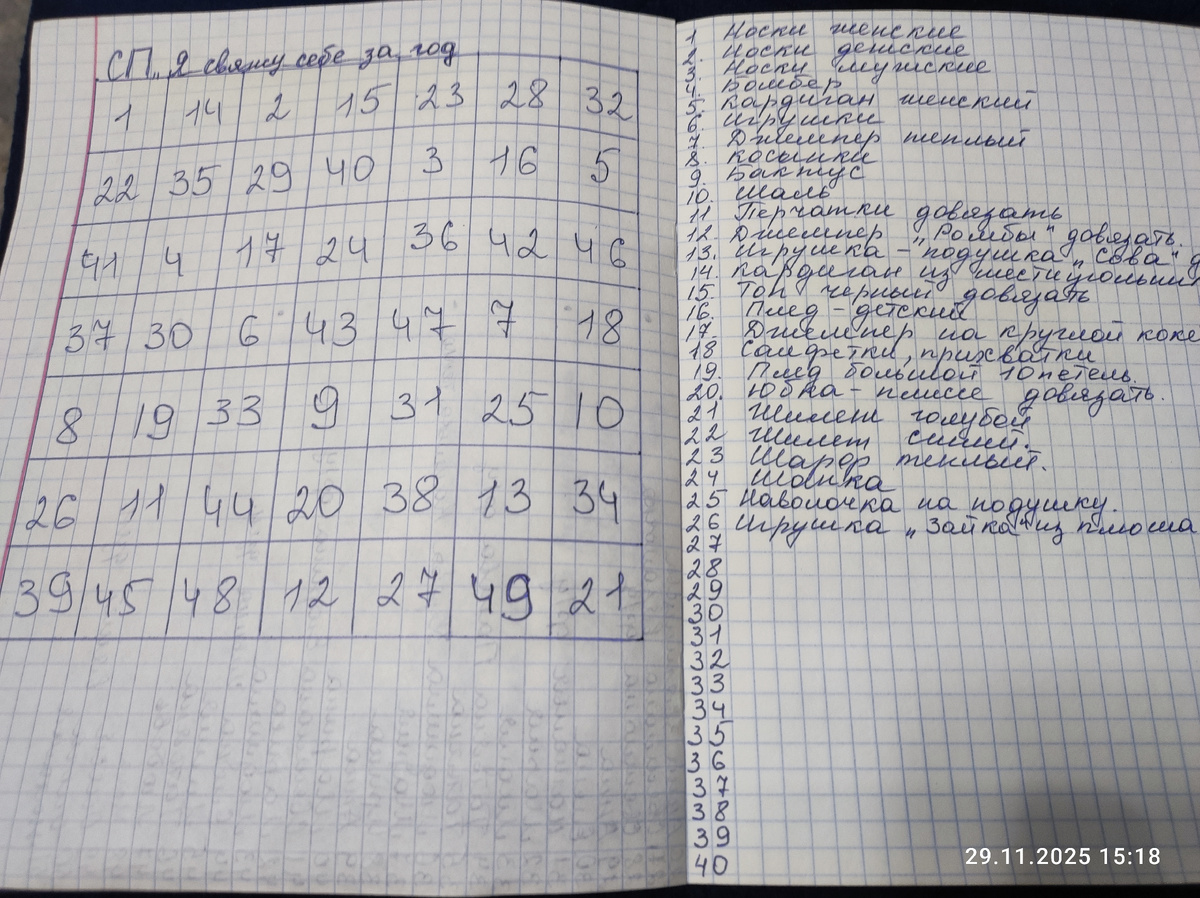 СП „Я свяжу себе за год
1 14 2 15 23 28 32
22 35 29 40 3 16 5
41 4 17 24 36 42 46
37 30 6 43 47 7 18
8 19 33 9 31 25 10
26 11 44 20 38 13 34
39 45 48 12 27 49 21
1 Носки женские
2. Носки детские
3. Носки мужские
4. Бомбер
5. Кардиган женский
6. Игрушки
7. Джемпер теплый
8. Косынки
9. Бактус
10. Шаль
11 Перчатки довязать
12. Джемпер „Ромбы" довязать.
13. Игрушка - подушка „Сова" д
14. Кардиган из шестиугольни
15. Топ черный довязать
16. Плед - детский
17. Джемпер на круглой коке
18 Салфетки, прихватки
19. Плед большой 10 петель.
20. Юбка - плиссе довязать.
21 Жилет голубой
22 Жилет синий.
23 Шарф теплый.
24 Шапка
25 Наволочка на подушку.
26 Игрушка „Зайка" из плюша
27
28
29
30
31
32
33
34
35
36
37
38
39
40
29.11.2025 15:18